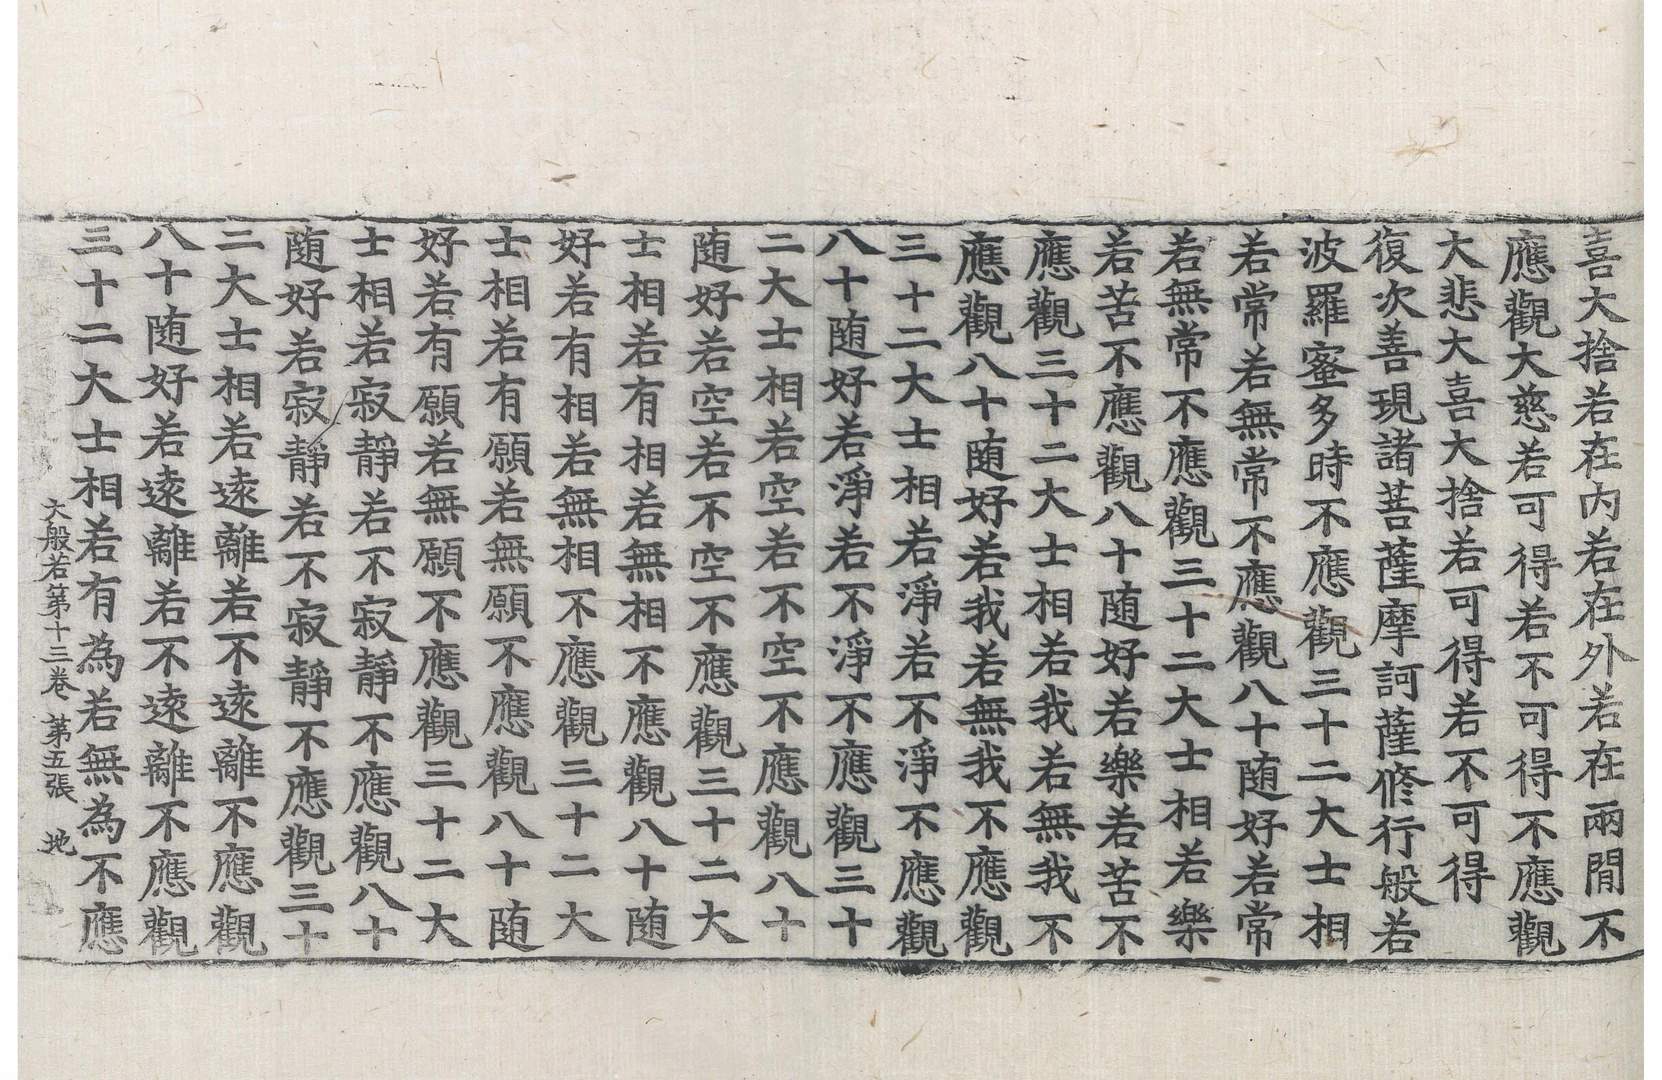 喜大捨若在內若在外若在兩閒不
應觀大慈若可得若不可得不應觀
大悲大喜大捨若可得若不可得
復次善現諸菩薩摩訶薩修行般若
波羅蜜多時不應觀三十二大士相
若常若無常不應觀八十随好若常
若無常不應觀三十二大士相若樂
若苦不應觀八十随好若樂若苦不
應觀三十二大士相若我若無我不
應觀八十随好若我若無我不應觀
三十二大士相若淨若不淨不應觀
八十随好若淨若不淨不應觀三十
二大士相若空若不空不應觀八十
随好若空若不空不應觀三十二大
士相若有相若無相不應觀八十随
好若有相若無相不應觀三十二大
士相若有願若無願不應觀八十随
好若有願若無願不應觀三十二大
士相若寂靜若不寂靜不應觀八十
随好若寂靜若不寂靜不應觀三十
二大士相若遠離若不遠離不應觀
八十随好若遠離若不遠離不應觀
三十二大士相若有為若無為不應
大般若第十三卷 第五張 地